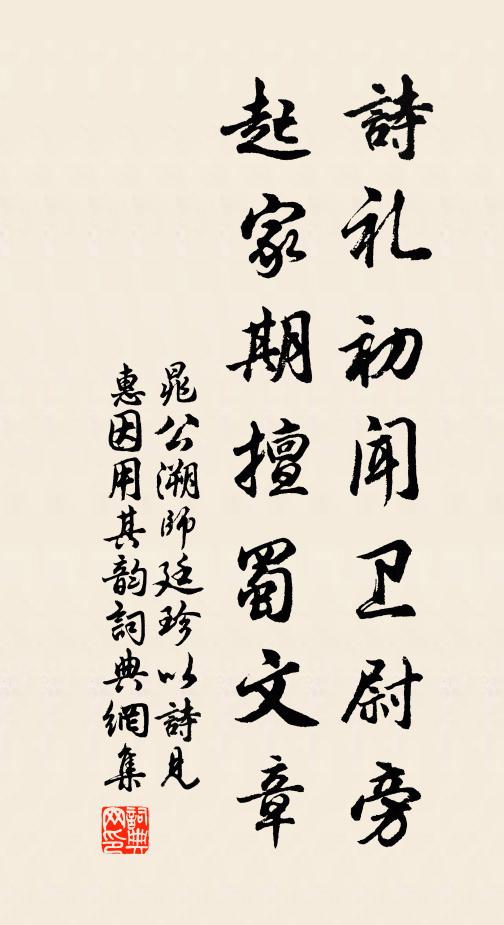 詩礼初闻卫尉旁
起家期擅蜀文章
晁公溯師廷珍以詩見
惠因用其韵詞典網集
詞典网印